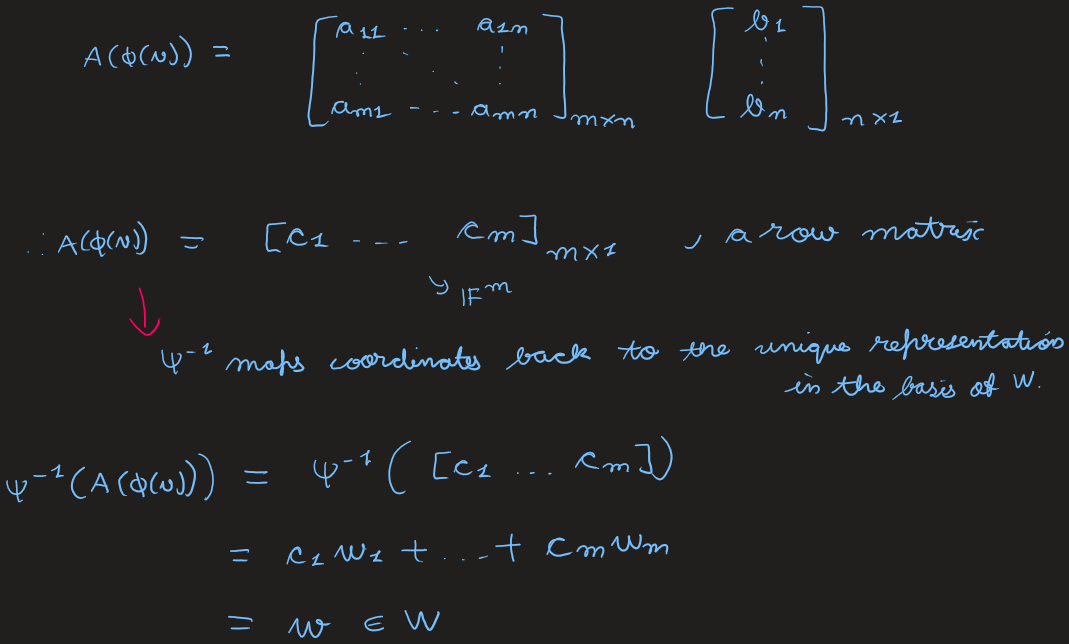 A(ϕ(v)) = [a11 ... a1n ⋮ ⋱ ⋮ am1 ... amn]m×n [b1 ⋮ bn]n×1
∴ A(ϕ(v)) = [c1 --- cm]m×1 , a row matrix
↘ 𝔽^m
ψ^-1 maps coordinates back to the unique representation
in the basis of W.
ψ^-1(A(ϕ(v))) = ψ^-1([c1 ... cm])
= c1w1 + ... + cmwm
= w ∈ W